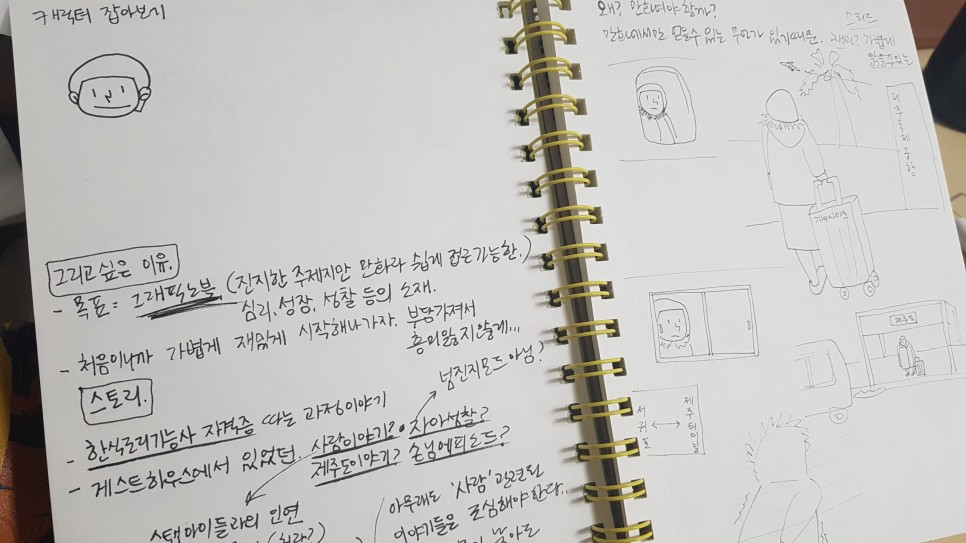 캐릭터 잡아보기
그리고 싶은 이유.
- 목표 = 그래픽노블 (진지한 주제지만 만화라 쉽게 접근가능한.)
심리, 성장, 성찰 등의 소재.
- 처음이니까 가볍게 재밌게 시작해나가자. 부담가져서
흥미잃지않게...
스토리.
넘진지모드아님?
- 한식조리기능사 자격증 따는 과정이야기
- 게스트하우스에서 있었던. 사랑이야기? 자아성찰?
제주도이야기? 손님에피소드?
스탭아이들과의 인연
아무래도 '사람' 관련된
이야기들은 조심해야한다..
왜? 만화여야 할까?
만화에서만 만들수 있는 무언가 있기때문.
재미? 가볍게
읽을수있는
제주국제공항
제주도
서귀포 ↔ 제주터미널